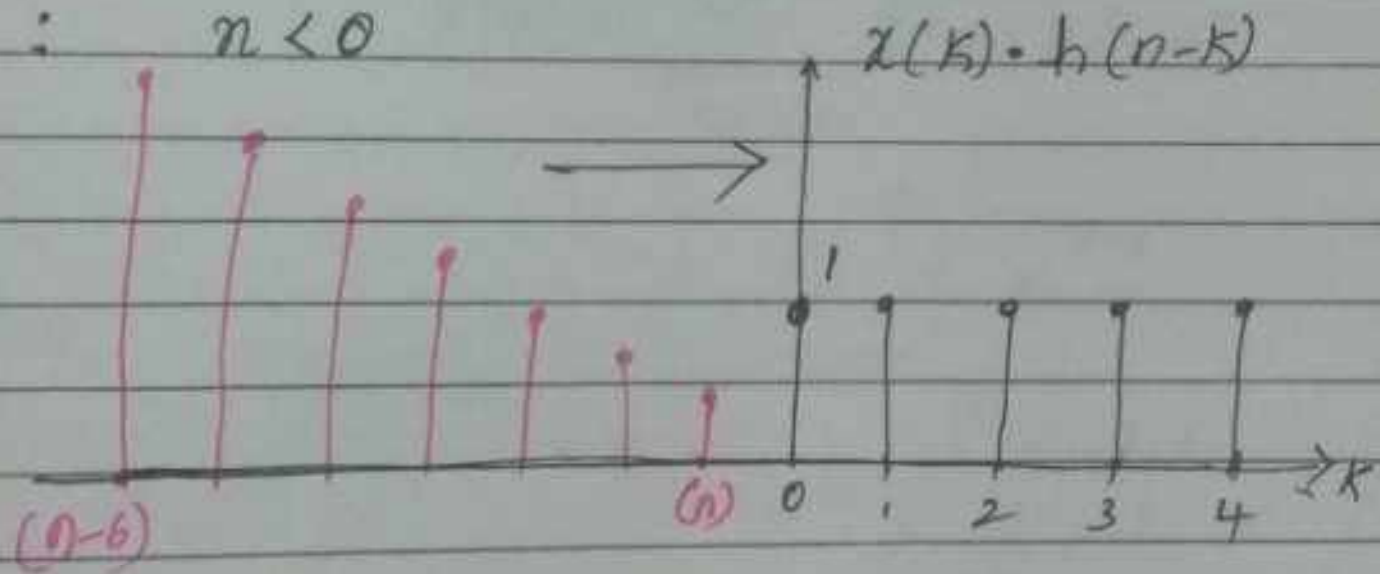 : n < 0
x(k) · h(n-k)
1
(n-6) (n) 0 1 2 3 4 k